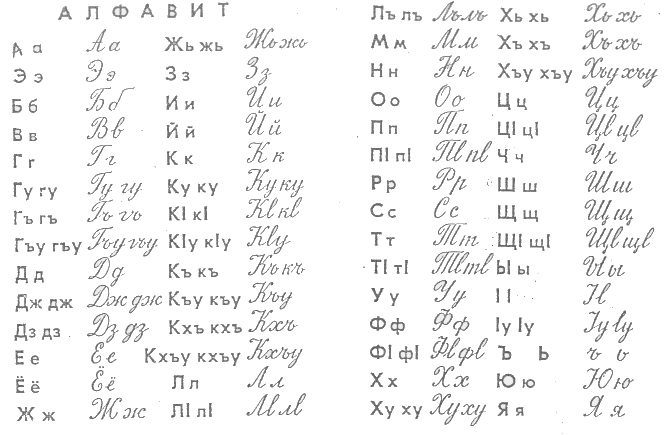 АЛФАВИТ
А а Аа Жь жь Жьжь
Э э Ээ З з Зз
Б б Бб И и Ии
В в Вв Й й Йй
Г г Гг К к Кк
Гу гу Гу гу Ку ку Ку ку
Гъ гъ Гъ гъ КӀ кӀ КӀ кӀ
Гъу гъу Гъу гъу КӀу кӀу КӀу
Д д Дд Къ къ Къ къ
Дж дж Дж дж Къу къу Къу
Дз дз Дз дз Кхъ кхъ Кхъ
Е е Ее Кхъу кхъу Кхъу
Ё ё Ёё Л л Лл
Ж ж Жж ЛӀ лӀ ЛӀ лӀ
Лъ лъ Лълъ Хь хь Хь хь
М м Мм Хъ хъ Хъ хъ
Н н Нн Хъу хъу Хъу хъу
О о Оо Ц ц Цц
П п Пп ЦӀ цӀ ЦӀ цӀ
ПӀ пӀ ПӀ пӀ Ч ч Чч
Р р Рр Ш ш Шш
С с Сс Щ щ Щщ
Т т Тт ЩӀ щӀ ЩӀ щӀ
ТӀ тӀ ТӀ тӀ Ы ы Ыы
У у Уу Ӏ Ӏ ӀӀ
Ф ф Фф Ӏу Ӏу Ӏу Ӏу
ФӀ фӀ ФӀ фӀ Ъ Ь ъ ь
Х х Хх Ю ю Юю
Ху ху Ху ху Я я Яя